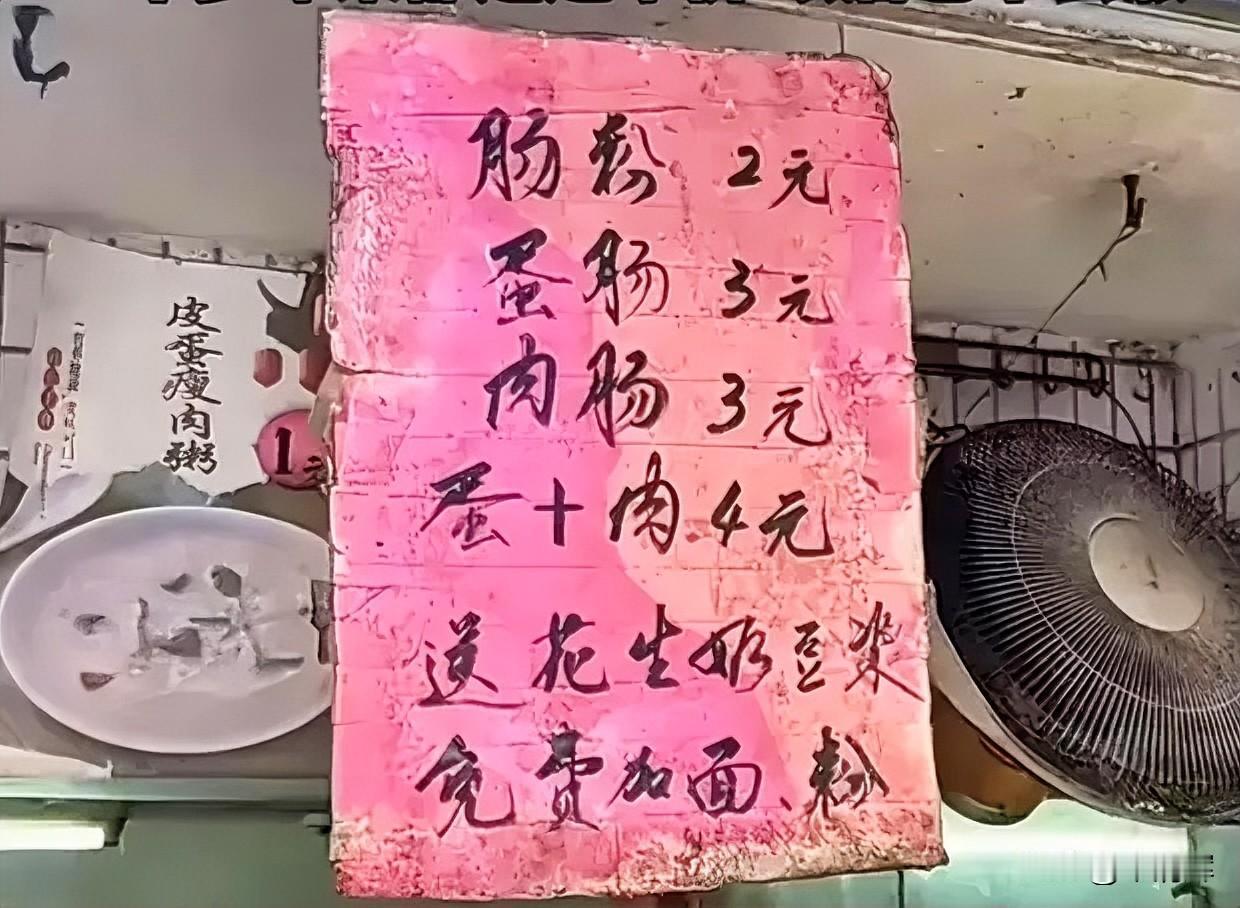 肠粉 2元
蛋肠 3元
肉肠 3元
蛋+肉 4元
送花生奶豆浆
免费加面、粉
皮蛋瘦肉粥
1元